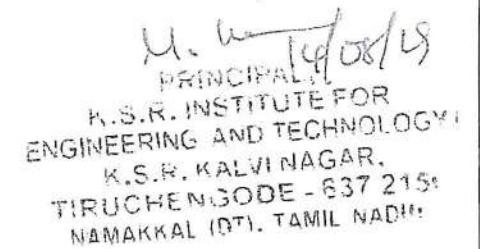 14/08/19
PRINCIPAL,
K.S.R. INSTITUTE FOR
ENGINEERING AND TECHNOLOGY,
K.S.R. KALVI NAGAR,
TIRUCHENGODE - 637 215,
NAMAKKAL (DT), TAMIL NADU.